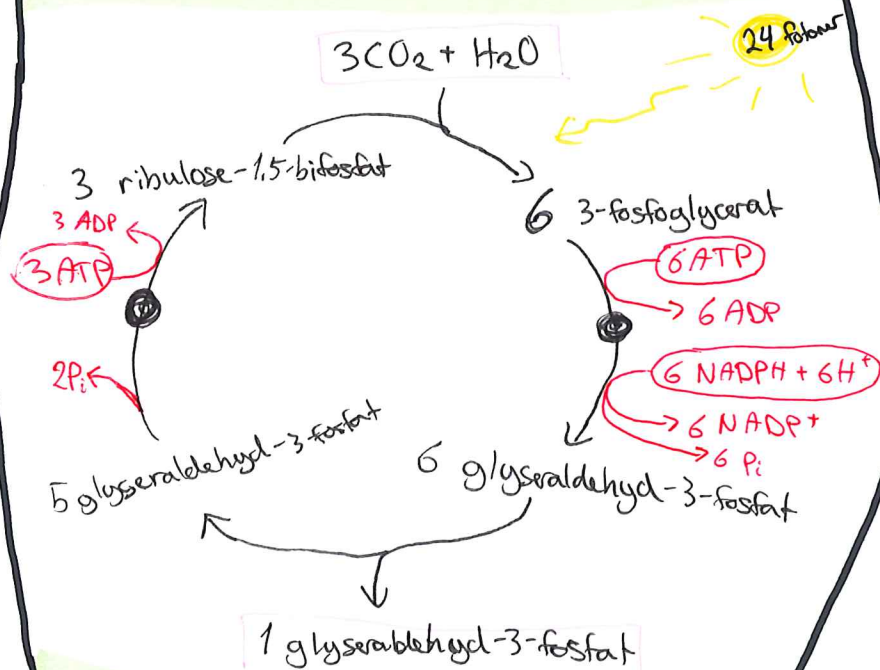 24 fotoner
3CO₂ + H₂O
3 ribulose-1,5-bifosfat
6 3-fosfoglycerat
3 ADP
3 ATP
6 ATP
6 ADP
2Pi
6 NADPH + 6H⁺
6 NADP⁺
6 Pi
5 glyseraldehyd-3-fosfat
6 glyseraldehyd-3-fosfat
1 glyseraldehyd-3-fosfat